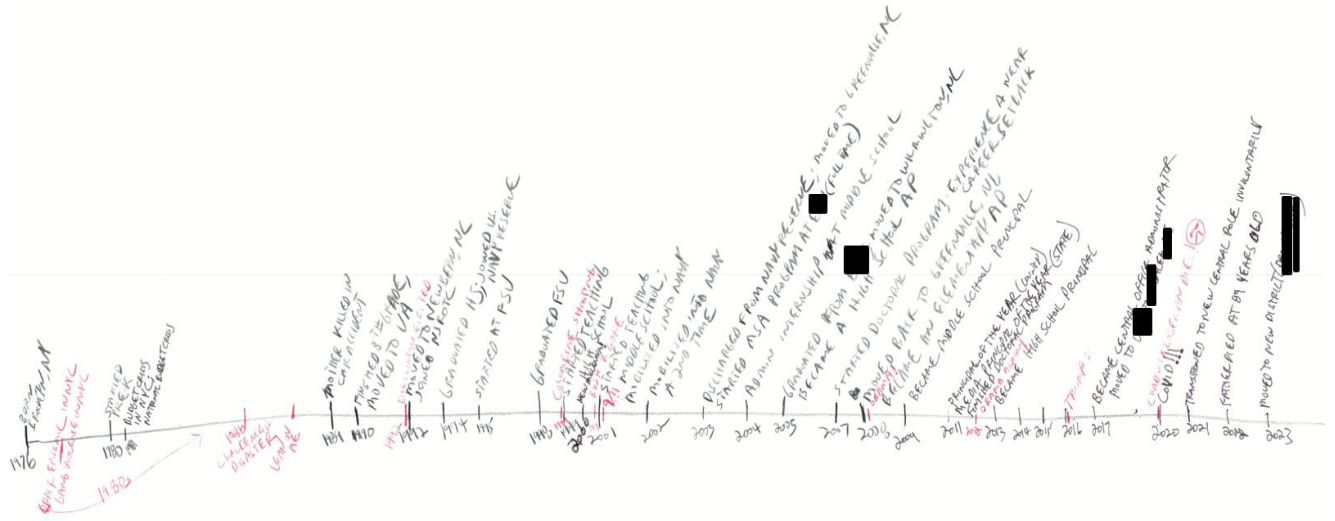 BORN
BRONX, NY
1976
CRACK EPIDEMIC IN NYC
GANG VIOLENCE IN NYC
1980s
STARTED
PREK
1980
BUDGET CRISIS
IN NYC;
1981
1986
CHALLENGER
DISASTER
MOTHER KILLED IN
CAR ACCIDENT
1989
FINISHED 8TH GRADE
MOVED TO VA
1990
1992
MOVED TO NEW BERN, NC
JOINED NJROTC
1992
GRADUATED HS; JOINED U.S.
NAVY RESERVE
1994
STARTED AT FSU
1995
GRADUATED FSU
1998
COLUMBINE SHOOTING
STARTED TEACHING
2000
STARTED TEACHING
MIDDLE SCHOOL;
MOBILIZED INTO NAVY
2001
MOBILIZED INTO NAVY
A 2ND TIME
2002
DISCHARGED FROM NAVY RESERVE; MOVED TO GREENVILLE, NC
STARTED MSA PROGRAM AT (FULL TIME)
2003
ADMIN INTERNSHIP AT MIDDLE SCHOOL
2004
GRADUATED FROM MOVED TO WILMINGTON, NC
BECAME A HIGH SCHOOL AP
2005
STARTED DOCTORAL PROGRAM; EXPERIENCE A NEAR
CAREER SETBACK
2007
MOVED BACK TO GREENVILLE, NC
BECAME AN ELEMENTARY AP
2008
BECAME MIDDLE SCHOOL PRINCIPAL
2009
PRINCIPAL OF THE YEAR (COUNTY)
MEDIA PRINCIPAL OF THE YEAR (STATE)
FINISHED DOCTORAL PROGRAM
2011
BECAME HIGH SCHOOL PRINCIPAL
2013
2014
2015
TRUMP
2016
BECAME CENTRAL OFFICE ADMINISTRATOR
MOVED TO
2017
COVID!!!
2020
TRANSITIONED TO NEW CENTRAL ROLE INVOLUNTARILY
2021
FATHER DIED AT 89 YEARS OLD
2022
MOVED TO NEW DISTRICT
2023